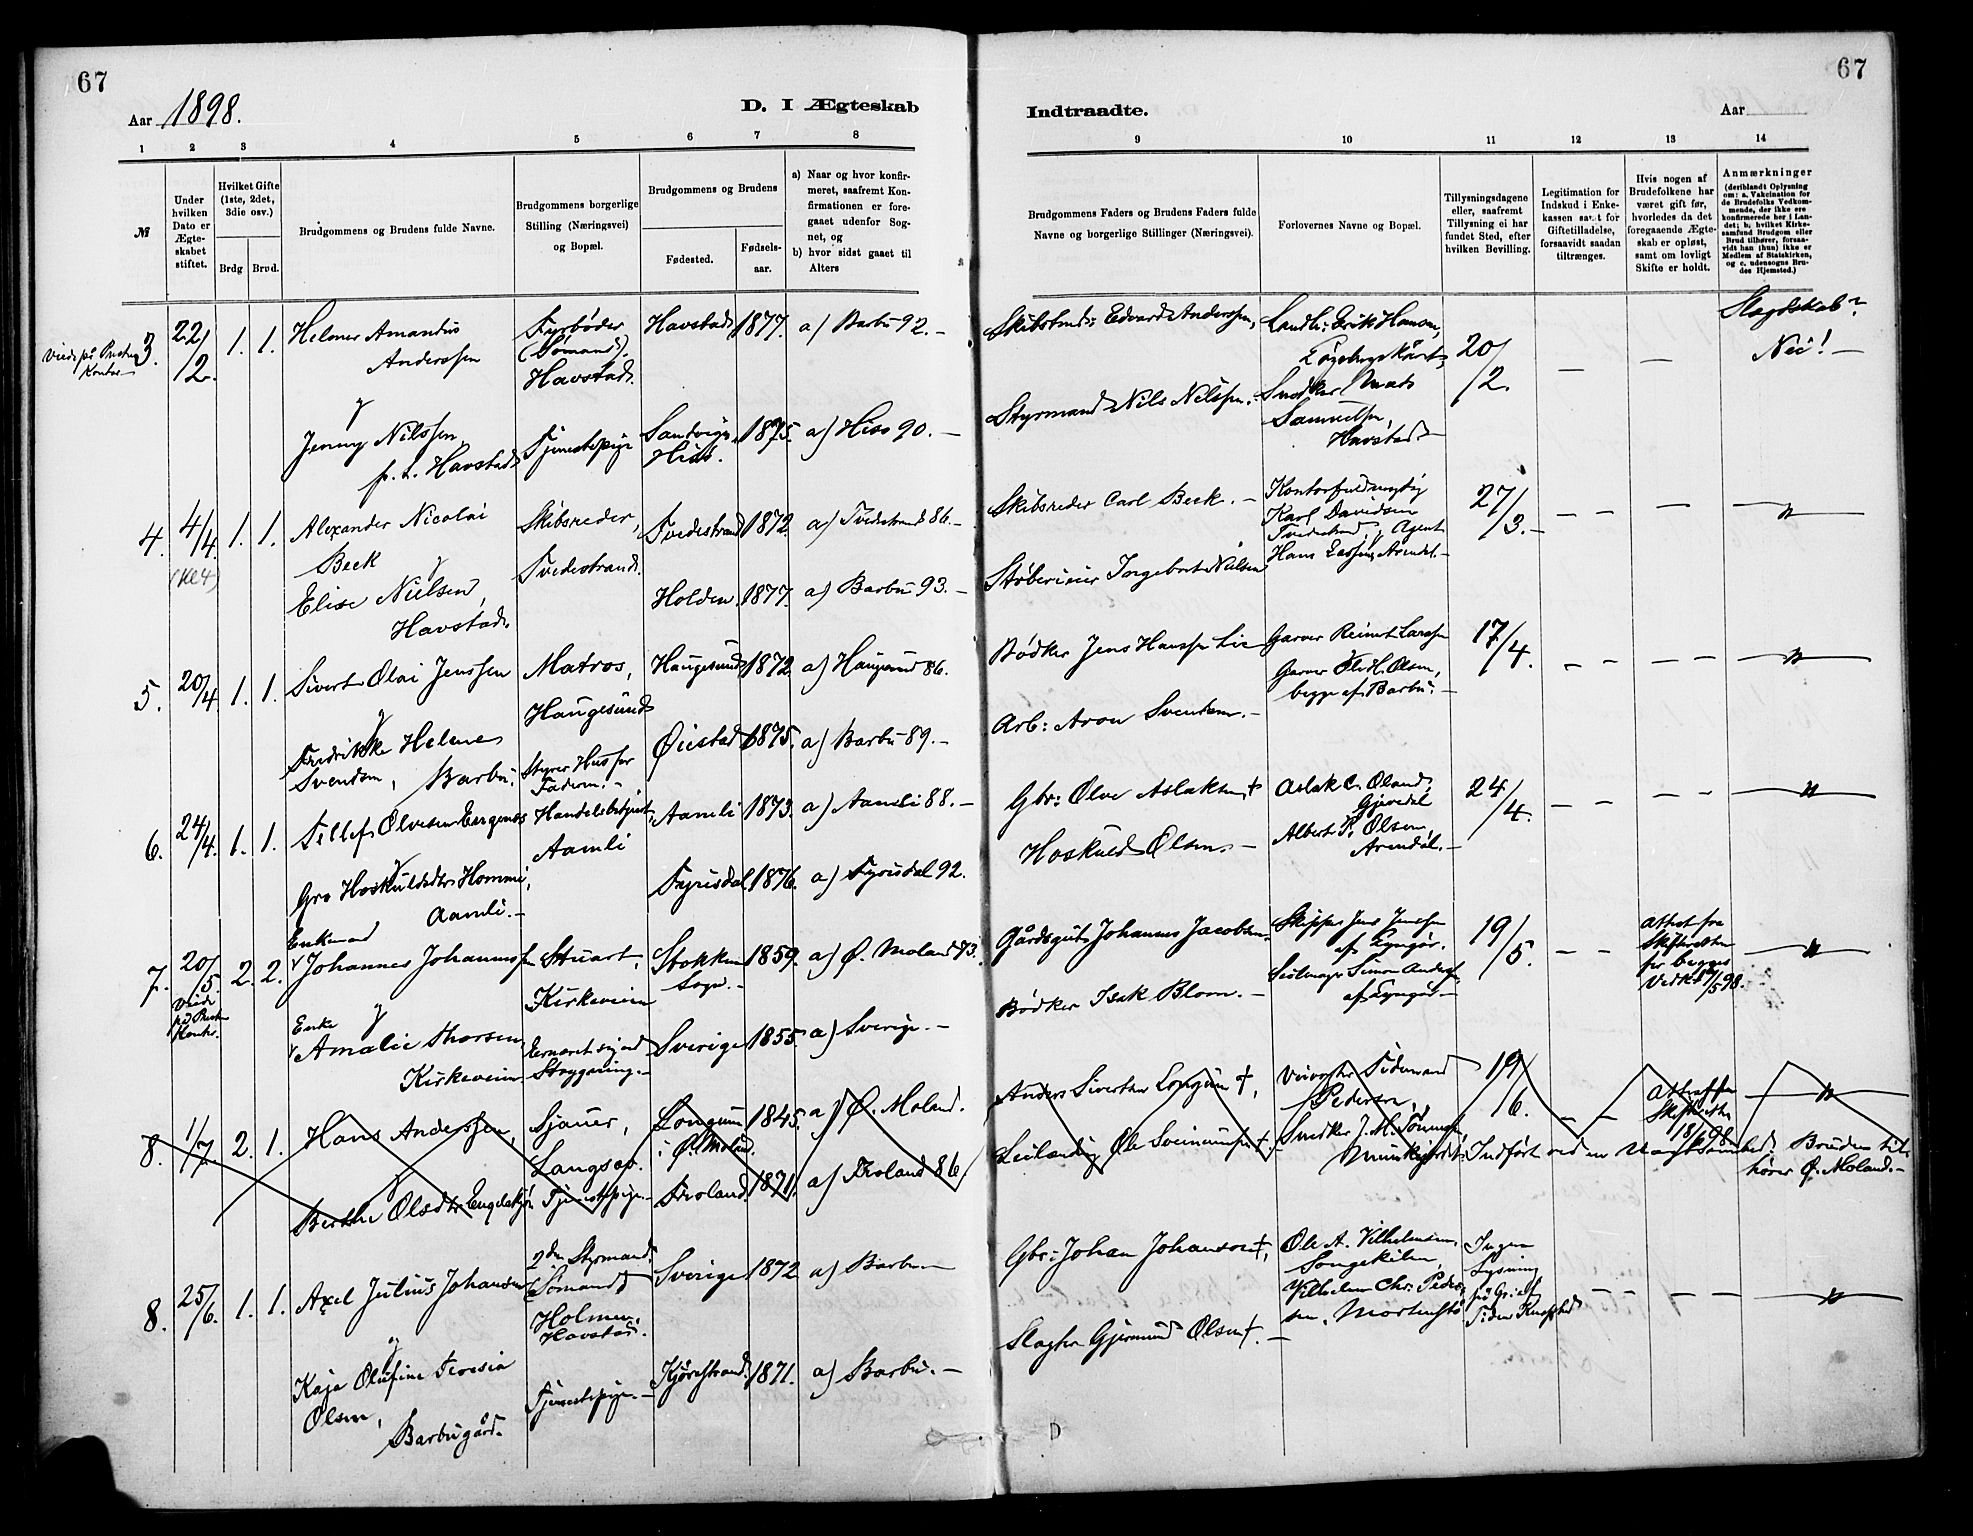 67
67
Aar 1898.
D. I Ægteskab
Indtraadte.
Aar
1 2 3 4 5 6 7 8
9 10 11 12 13 14
№
Under hvilken Dato er Ægteskabet stiftet.
Hvilket Gifte (1ste, 2det, 3die osv.)
Brdg Brud.
Brudgommens og Brudens fulde Navne.
Brudgommens borgerlige Stilling (Næringsvei) og Bopæl.
Brudgommens og Brudens
Fødested.
Fødselsaar.
a) Naar og hvor konfirmeret, saafremt Konfirmationen er foregaaet udenfor Sognet, og
b) hvor sidst gaaet til Alters
Brudgommens Faders og Brudens Faders fulde Navne og borgerlige Stillinger (Næringsvei).
Forlovernes Navne og Bopæl.
Tillysningsdagene eller, saafremt Tillysning ei har fundet Sted, efter hvilken Bevilling.
Legitimation for Indskud i Enkekassen samt for Giftetilladelse, forsaavidt saadan tiltrænges.
Hvis nogen af Brudefolkene har været gift før, hvorledes da det foregaaende Ægteskab er opløst, samt om lovligt Skifte er holdt.
Anmærkninger
(deriblandt Oplysning om: a. Vakcination for de Brudefolks Vedkommende, der ikke ere konfirmerede her i Landet; b. hvilket Kirkesamfund Brudgom eller Brud tilhører, forsaavidt han (hun) ikke er Medlem af Statskirken, og c. udensogns Brudes Hjemsted.)
3. 22/2. 1. 1. Helmer Amandus Anderssen
Fyrbøder (Sømand). Havstad.
Havstad 1877. a) Barbu 92. —
Skibstmd: Edvard Anderssen,
20/2. — —
Slagtskab?
Nei! —
&
Jenny Nilssen, p. t. Havstad
Tjenestepige
Sandvigen, Hisø. 1875. a) Hisø 90. —
Styrmand Nils Nilssen. —
Snedker Mads Samuelsen, Havstad —
4. 4/4. (Kl 4) 1. 1. Alexander Nicolai Beck
Skibsreder, Tvedestrand.
Tvedestrand 1872. a) Tvedestrand 86. —
Skibsreder Carl Beck. —
Kontorfuldmægtig Karl Davidsen Tvedestrand, Agent
27/3. — — — — "
&
Elise Nielsen, Havstad.
Holden. 1877. a) Barbu 93. —
Støberieier Ingebret Nielsen
5. 20/4 1. 1. Sivert Olai Jenssen
Matros, Haugesund
Haugesund 1872. a) Haugesund 86.
Bødker Jens Hanssen Lie
Garver Reinert Larssen
Garver Fredk. Olsen, begge af Barbu. —
17/4. — — — — "
&
Fredrikke Helene Svendsen, Barbu.
Styrer Hus for Faderen. —
Øiestad 1875. a) Barbu 89. —
Arb: Aron Svendsen. —
6. 24/4. 1. 1.
Handelsbetjent, Aamli
Aamli 1873. a) Aamli 88. —
Gbr: Olve Aslaksen †
Aslak C. Øland, Gjøvdal
Albert P. Olsen, Arendal. —
24/4. — — — — "
&
Gro Hoskuldsdtr Hommi, Aamli. —
Fyrisdal 1876. a) Fyrisdal 92.
Hoskuld Olsen. —
7. 20/5. 2. 2. Enkemand Johannes Johannessen
Stuart, Kirkeveien
Stokken Sogn. — 1859. a) Ø. Moland 73.
Gårdsgut Johannes Jacobsen
Skipper Jens Jenssen af Lyngør.
19/5. — —
Attest fra Skifteretten for begges Vedk. — "
&
Enke
Amalie Thorsen, Kirkeveien
Ernæret sig ved Strygning. —
Sverige 1855. a) Sverige. —
Bødker Isak Blom. —
8. 1/7 2. 1. Hans Anderssen,
Sjauer, Langsæ.
Longum i Ø. Moland. 1845. a) Ø. Moland.
Anders Sivertsen Longum †,
Pedersen,
19/6. — —
Attest fra Skifteretten 18/6 98. "
&
Berthe Olsdtr
Tjenestepige —
Froland. 1871. a) Froland 86.
Indført ved en Uagtsomhed. Bruden tilhører Ø. Moland. —
8. 25/6. 1. 1. Axel Julius Johansen
2den Styrmand, (Sømand) Holmen, Havstad.
Sverige 1872 a) Barbu —
Gbr: Johan Johanson †,
Ole A. Vilhelmsen, Songekilen,
Vilhelm Chr. Pedersen,
Ingen Lysning
— — — — "
&
Kaja Olufine Teresia Olsen, Barbugård.
Tjenestepige. —
1871. a) Barbu. —
Slagter Gjermund Olsen †. —